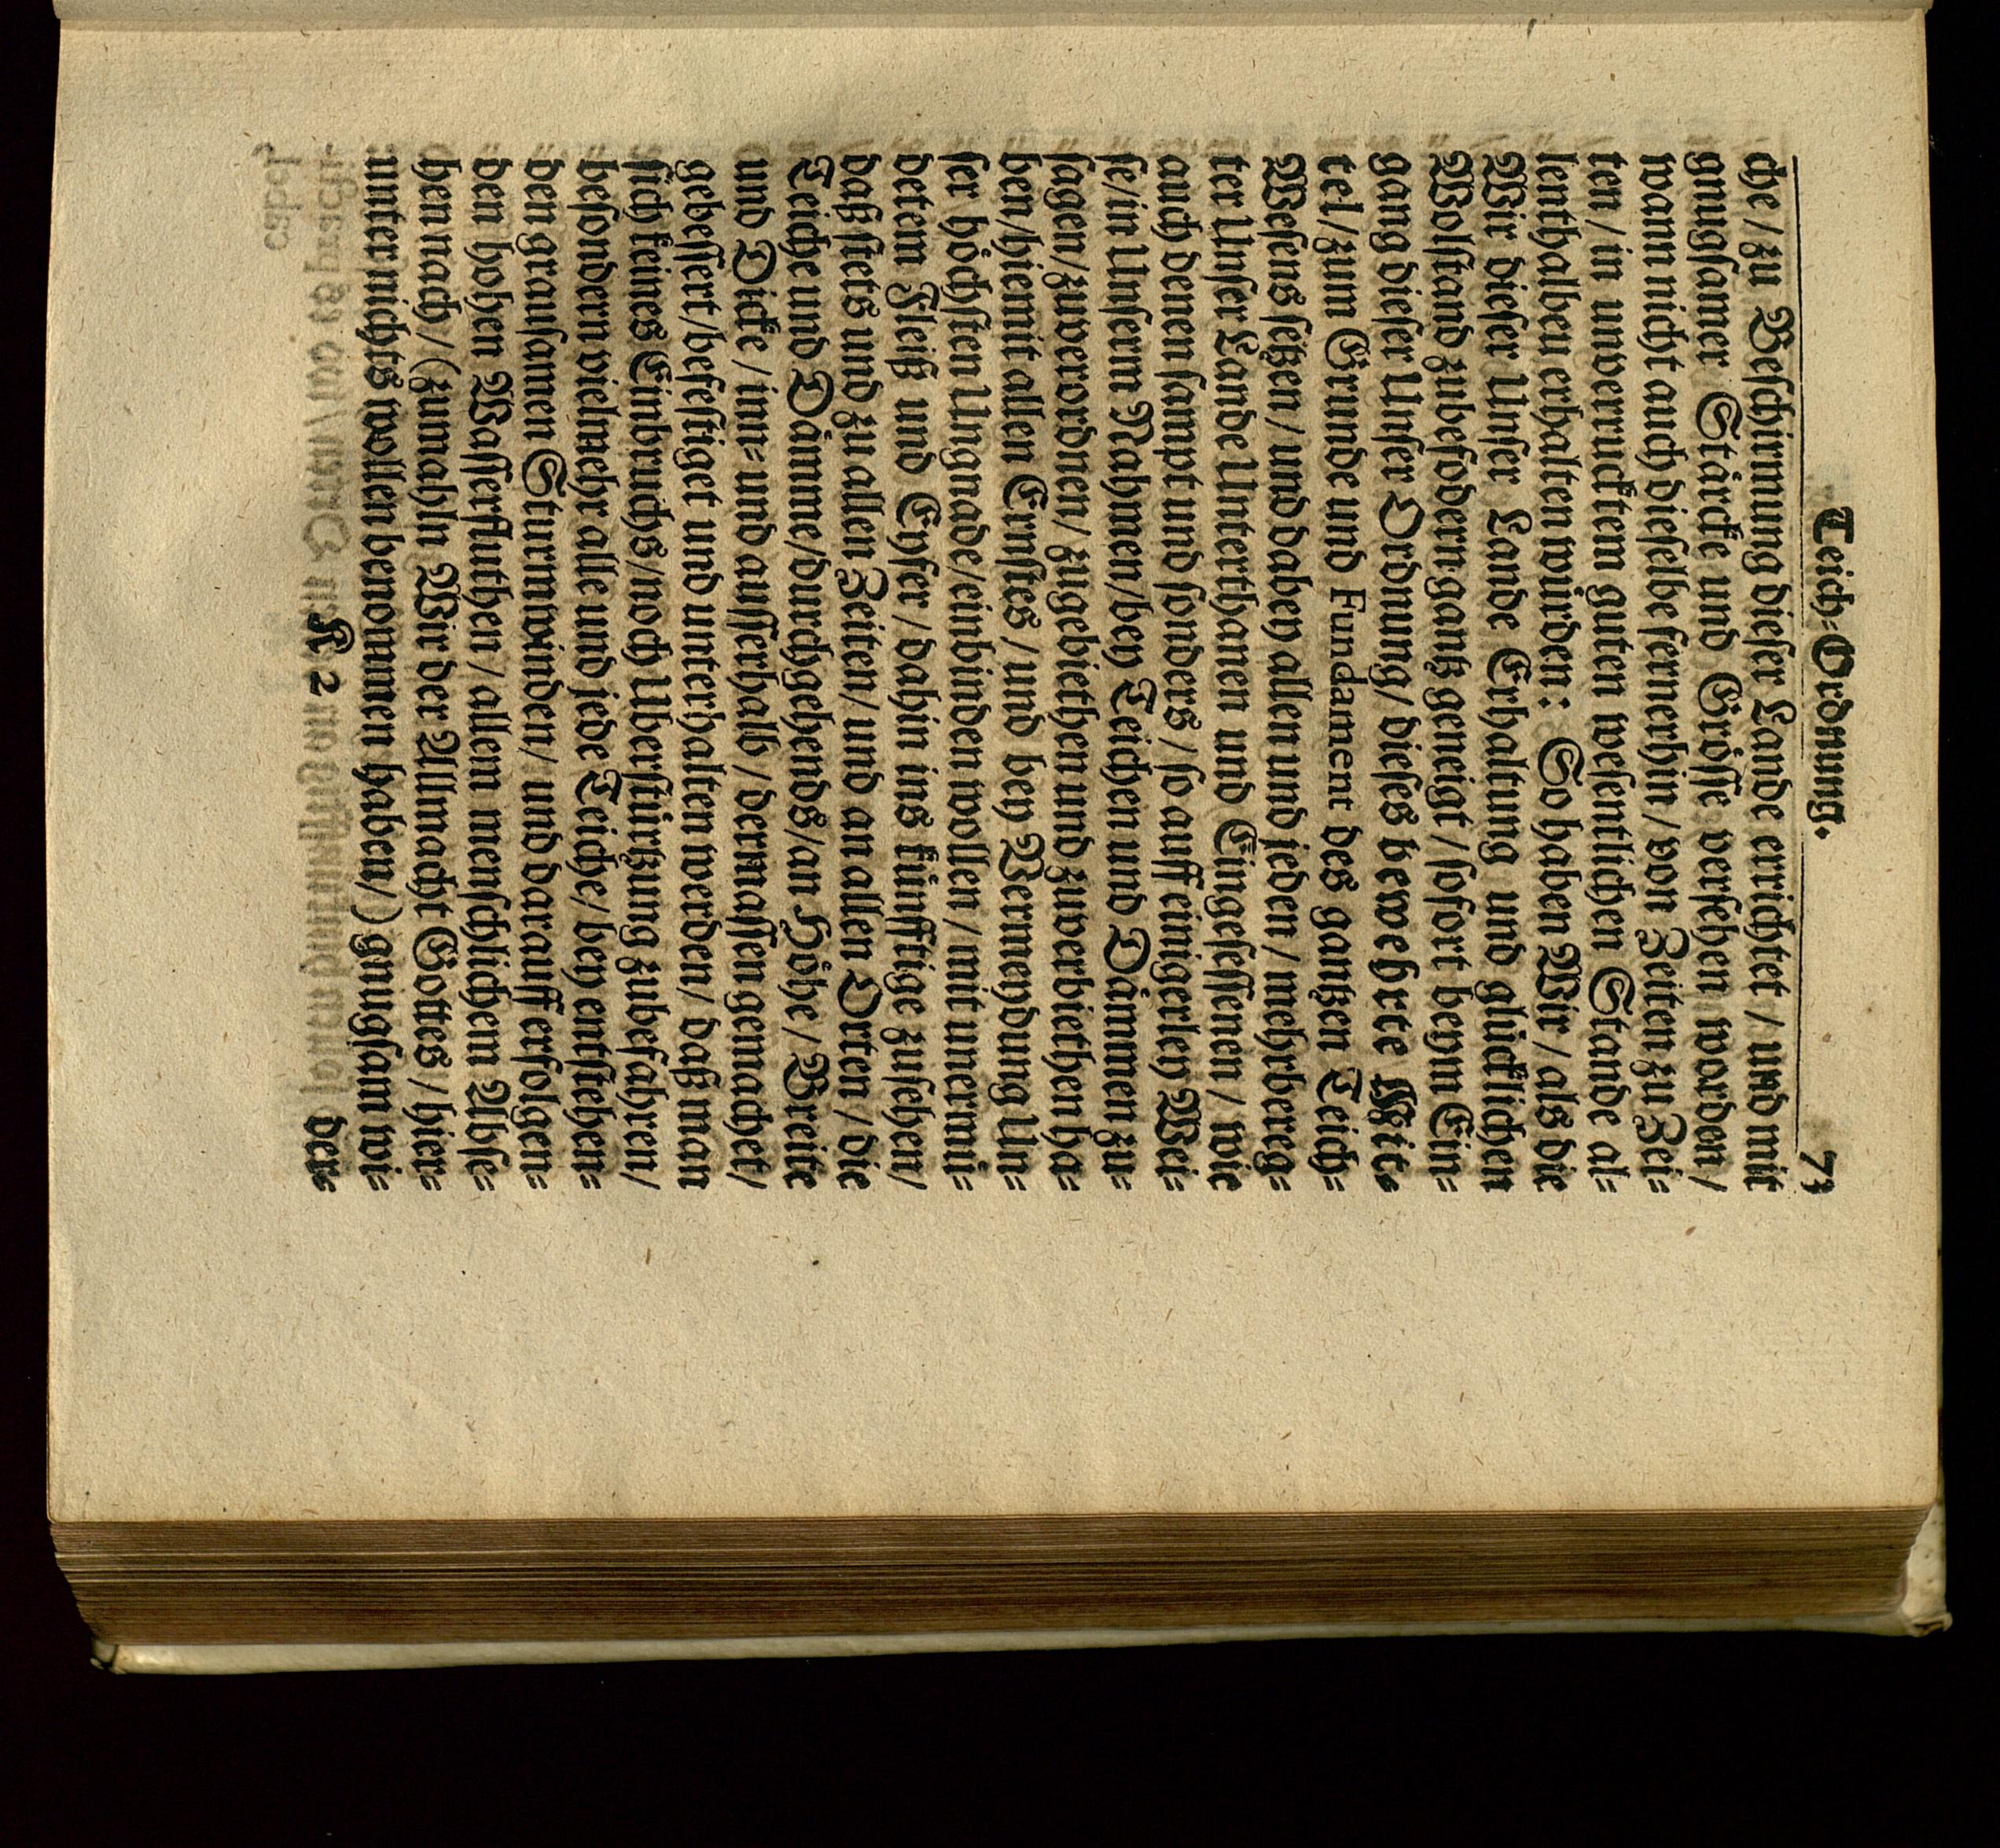 Teich-Ordnung. 73
che / zu Beschirmung dieser Lande errichtet / und mit
gnugsamer Stärcke und Grösse versehen worden /
wann nicht auch dieselbe fernerhin / von Zeiten zu Zei-
ten / in unverrucktem guten wesentlichen Stande al-
lenthalben erhalten würden: So haben Wir / als die
Wir dieser Unser Lande Erhaltung und glücklichen
Wolstand zubefodern gantz geneigt / sofort beym Ein-
gang dieser Unser Ordnung / dieses bewehrte Mit-
tel / zum Grunde und Fundament des gantzen Teich-
Wesens setzen / und dabey allen und jeden / mehrbereg-
ter Unser Lande Unterthanen und Eingesessenen / wie
auch denen sampt und sonders / so auff einigerley Wei-
se / in Unserm Nahmen / bey Teichen und Dämmen zu
sagen / zuverordnen / zugebiethen und zuverbiethen ha-
ben / hiemit allen Ernstes / und bey Vermeydung Un-
ser höchsten Ungnade / einbinden wollen / mit unermü-
detem Fleiß und Eyfer / dahin ins künfftige zusehen /
daß stets und zu allen Zeiten / und an allen Orten / die
Teiche und Dämme / durchgehends / an Höhe / Breite
und Dicke / inn- und ausserhalb / dermassen gemachet /
gebessert / befestiget und unterhalten werden / daß man
sich keines Einbruchs / noch Uberstürtzung zubefahren /
besondern vielmehr alle und jede Teiche / bey entstehen-
den grausamen Sturmwinden / und darauff erfolgen-
den hohen Wasserfluthen / allem menschlichem Abse-
hen nach / (zumahln Wir der Allmacht Gottes / hier-
unter nichts wollen benommen haben /) gnugsam wi-
K 2 der-